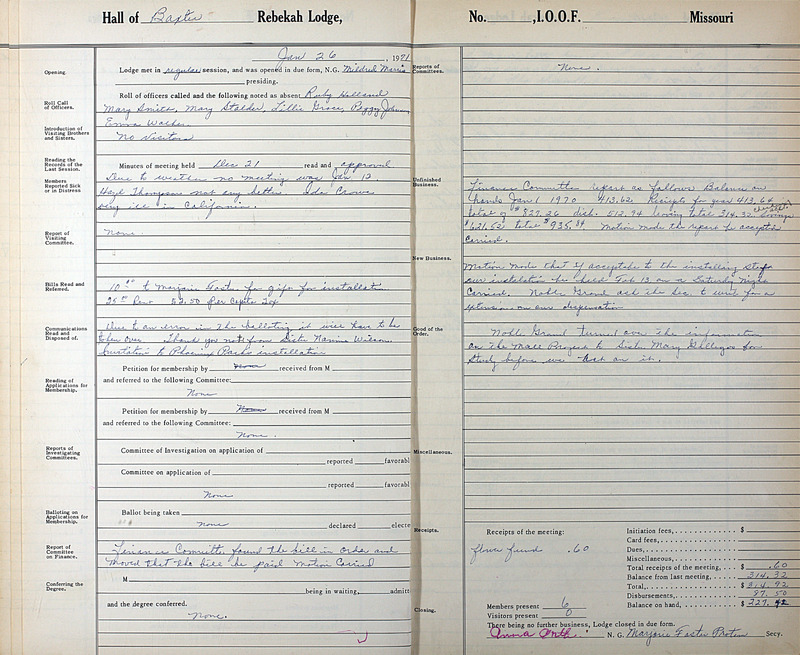 Hall of Baxter Rebekah Lodge,
Jan 26, 1971
Opening.
Lodge met in regular session, and was opened in due form, N.G. Mildred
presiding.
Roll Call of Officers.
Roll of officers called and the following noted as absent Ruby Holland
Mary Smith, Mary Stalder, Lillie Grace, Peggy
Emma Walker
Introduction of Visiting Brothers and Sisters.
No Visitors
Reading the Records of the Last Session.
Minutes of meeting held Dec 21 read and approval
Members Reported Sick or in Distress
Due to weather no meeting was Jan 12
Hazel Thompson not any better Ida Crowe
very ill in California.
Report of Visiting Committee.
None
Bills Read and Referred.
10.00 to Marjorie Foster for gifts for installation
25.00 Rent 52.50 Per Capita Tax
Communications Read and Disposed of.
Due to an error in the balloting it will have to be
taken over. Thank you note from Sister Nannie Wilson.
Invitation to Rocks installation
Petition for membership by None received from M
and referred to the following Committee:
Reading of Applications for Membership.
None
Petition for membership by None received from M
and referred to the following Committee:
None.
Reports of Investigating Committees.
Committee of Investigation on application of
reported favorabl
Committee on application of
reported favorabl
None
Balloting on Applications for Membership.
Ballot being taken
None declared electe
Report of Committee on Finance.
Finance Committe found the bill in order and
moved that the bill be paid Motion Carried
Conferring the Degree.
M
being in waiting, admitt
and the degree conferred.
None.
No. , I.O.O.F. Missouri
Reports of Committees.
None.
Unfinished Business.
Finance Committee report as follows Balance on
hand Jan 1 1970 413.62 Receipts for year 413.64
total of $827.26 disb. 512.94 leaving total 314.32 Savings
$621.52 total $935.84 Motion made the report be accepted
Carried.
New Business.
Motion made that if acceptible to the installing staff
our instalation be held Feb 13 on a Saturday Night
Carried. Noble Grand ask the Sec. to write for a
extension on our dispensation
Good of the Order.
Noble Grand turned over the information
on the Mall Project to Sister Mary Gallegos for
study before we act on it.
Miscellaneous.
Receipts.
Receipts of the meeting:
flower fund .60
Initiation fees, $
Card fees,
Dues,
Miscellaneous,
Total receipts of the meeting, .60
Balance from last meeting, 314.32
Total, $ 314.92
Disbursements, 87.50
Balance on hand, $ 227.42
Members present 6
Visitors present 0
Closing.
There being no further business, Lodge closed in due form.
Anna Smith N. G. Marjorie Foster Protem Secy.